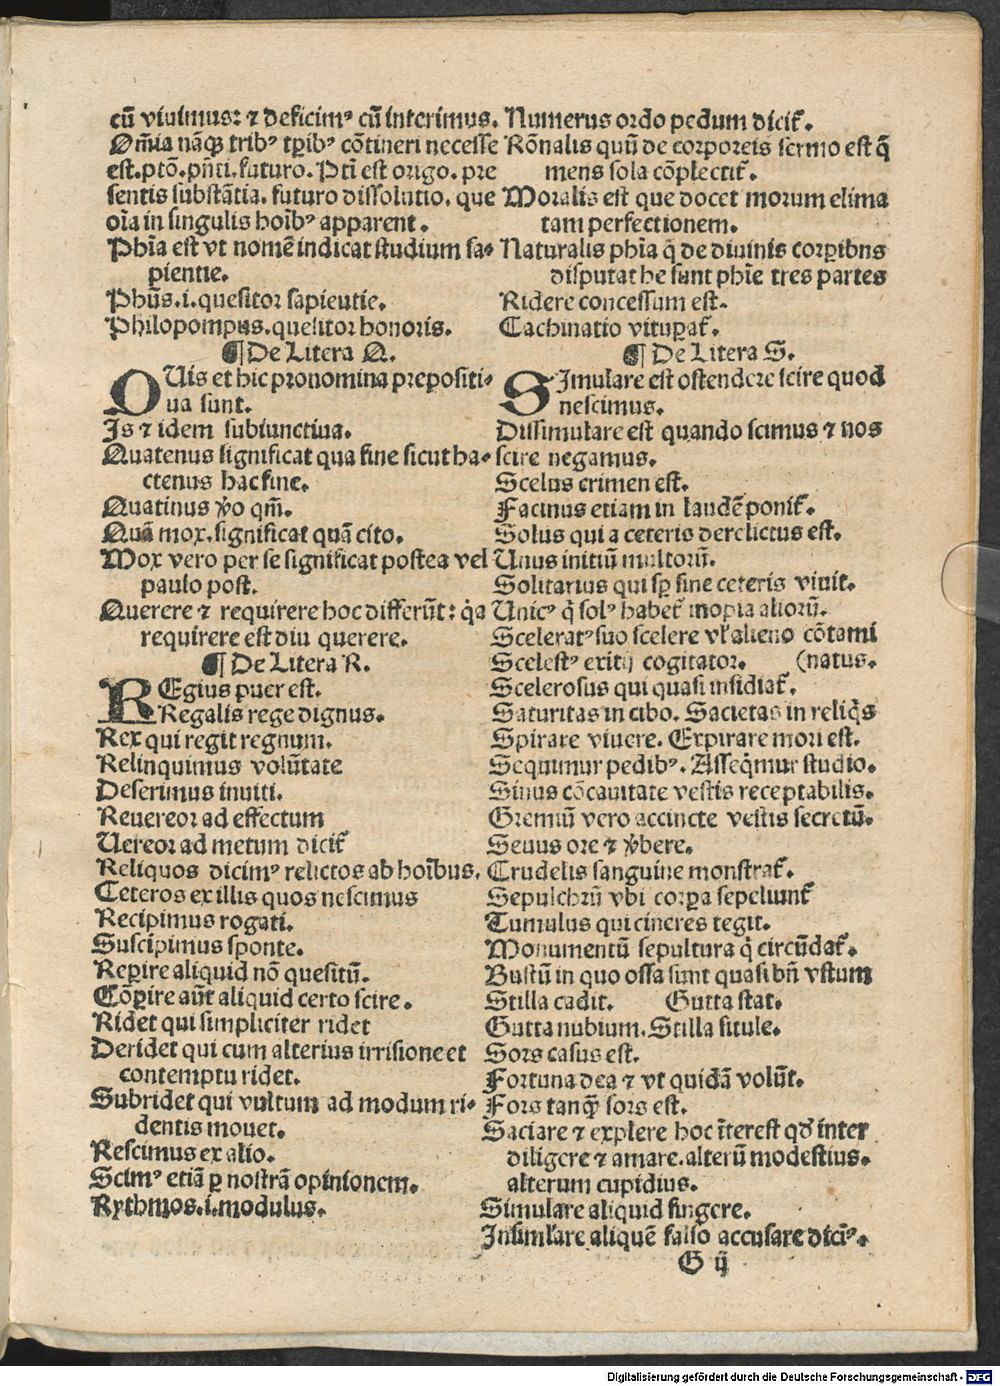 cū viuimus: ⁊ deficimꝰ cū interimus.
Om̄ia nāꝗ tribꝰ tꝑibꝰ cōtineri necesse
est. ptō. pn̄ti. futuro. Pti est origo. pre
sentis substātia. futuro dissolutio. que
oīa in singulis hoībꝰ apparent.
Phīa est vt nomē indicat studium sa⸗
pientie.
Phūs. i. quesitor sapieutie.
Philopompus. quesitor honoris.
¶ De Litera Q.
QUis et hic pronomina prepositi⸗
ua sunt.
Is ⁊ idem subiunctiua.
Quatenus significat qua fine sicut ha⸗
ctenus hac fine.
Quatinus ꝟo qm̄.
Quā mox. significat quā cito.
Mox vero per se significat postea vel
paulo post.
Querere ⁊ requirere hoc differūt: q̇a
requirere est diu querere.
¶ De Litera R.
REgius puer est.
Regalis rege dignus.
Rex qui regit regnum.
Relinquimus volūtate
Deserimus inuiti.
Reuereor ad effectum
Uereor ad metum dicit᷑
Reliquos dicimꝰ relictos ab hoībus.
Ceteros ex illis quos nescimus
Recipimus rogati.
Suscipimus sponte.
Reꝑire aliquid nō quesitū.
Cōꝑire aūt aliquid certo scire.
Ridet qui simpliciter ridet
Deridet qui cum alterius irrisione et
contemptu ridet.
Subridet qui vultum ad modum ri⸗
dentis mouet.
Rescimus ex alio.
Scimꝰ etiā ꝑ nostrā opinionem.
Rythmos. i. modulus.
Numerus ordo pedum dicit᷑.
Rōnalis quū de corporeis sermo est q̄
mens sola cōplectit᷑.
Moralis est que docet morum elima
tam perfectionem.
Naturalis phīa q̄ de diuinis corꝑibns
disputat he sunt phīe tres partes
Ridere concessum est.
Cachinatio vituꝑat᷑.
¶ De Litera S.
SImulare est ostendere scire quod
nescimus.
Dissimulare est quando scimus ⁊ nos
scire negamus.
Scelus crimen est.
Facinus etiam in laudē ponit᷑.
Solus qui a ceteris derelictus est.
Unus initiū multorū.
Solitarius qui sꝑ sine ceteris viuit.
Unicꝰ q̇ solꝰ habet᷑ inopia aliorū.
Sceleratꝰ suo scelere vl᷑ alieno cōtami
Scelestꝰ exitij cogitator. (natus.
Scelerosus qui quasi insidiat᷑.
Saturitas in cibo. Sacietas in reliq̇s
Spirare viuere. Expirare mori est.
Sequimur pedibꝰ. Asseq̇mur studio.
Sinus cōcauitate vestis receptabilis.
Gremiū vero accincte vestis secretū.
Seuus ore ⁊ ꝟbere.
Crudelis sanguine monstrat᷑.
Sepulchrū vbi corꝑa sepeliunt᷑
Tumulus qui cineres tegit.
Monumentū sepultura q̄ circūdat᷑.
Bustū in quo ossa sunt quasi bn̄ vstum
Stilla cadit. Gutta stat.
Gutta nubium. Stilla situle.
Sors casus est.
Fortuna dea ⁊ vt quidā volūt.
Fors tanꝗ̄ sors est.
Saciare ⁊ explere hoc īterest qd̛ inter
diligere ⁊ amare. alterū modestius.
alterum cupidius.
Simulare aliquid fingere.
Insimlare aliquē falso accusare dicimꝰ.
G ij
Digitalisierung gefördert durch die Deutsche Forschungsgemeinschaft - DFG